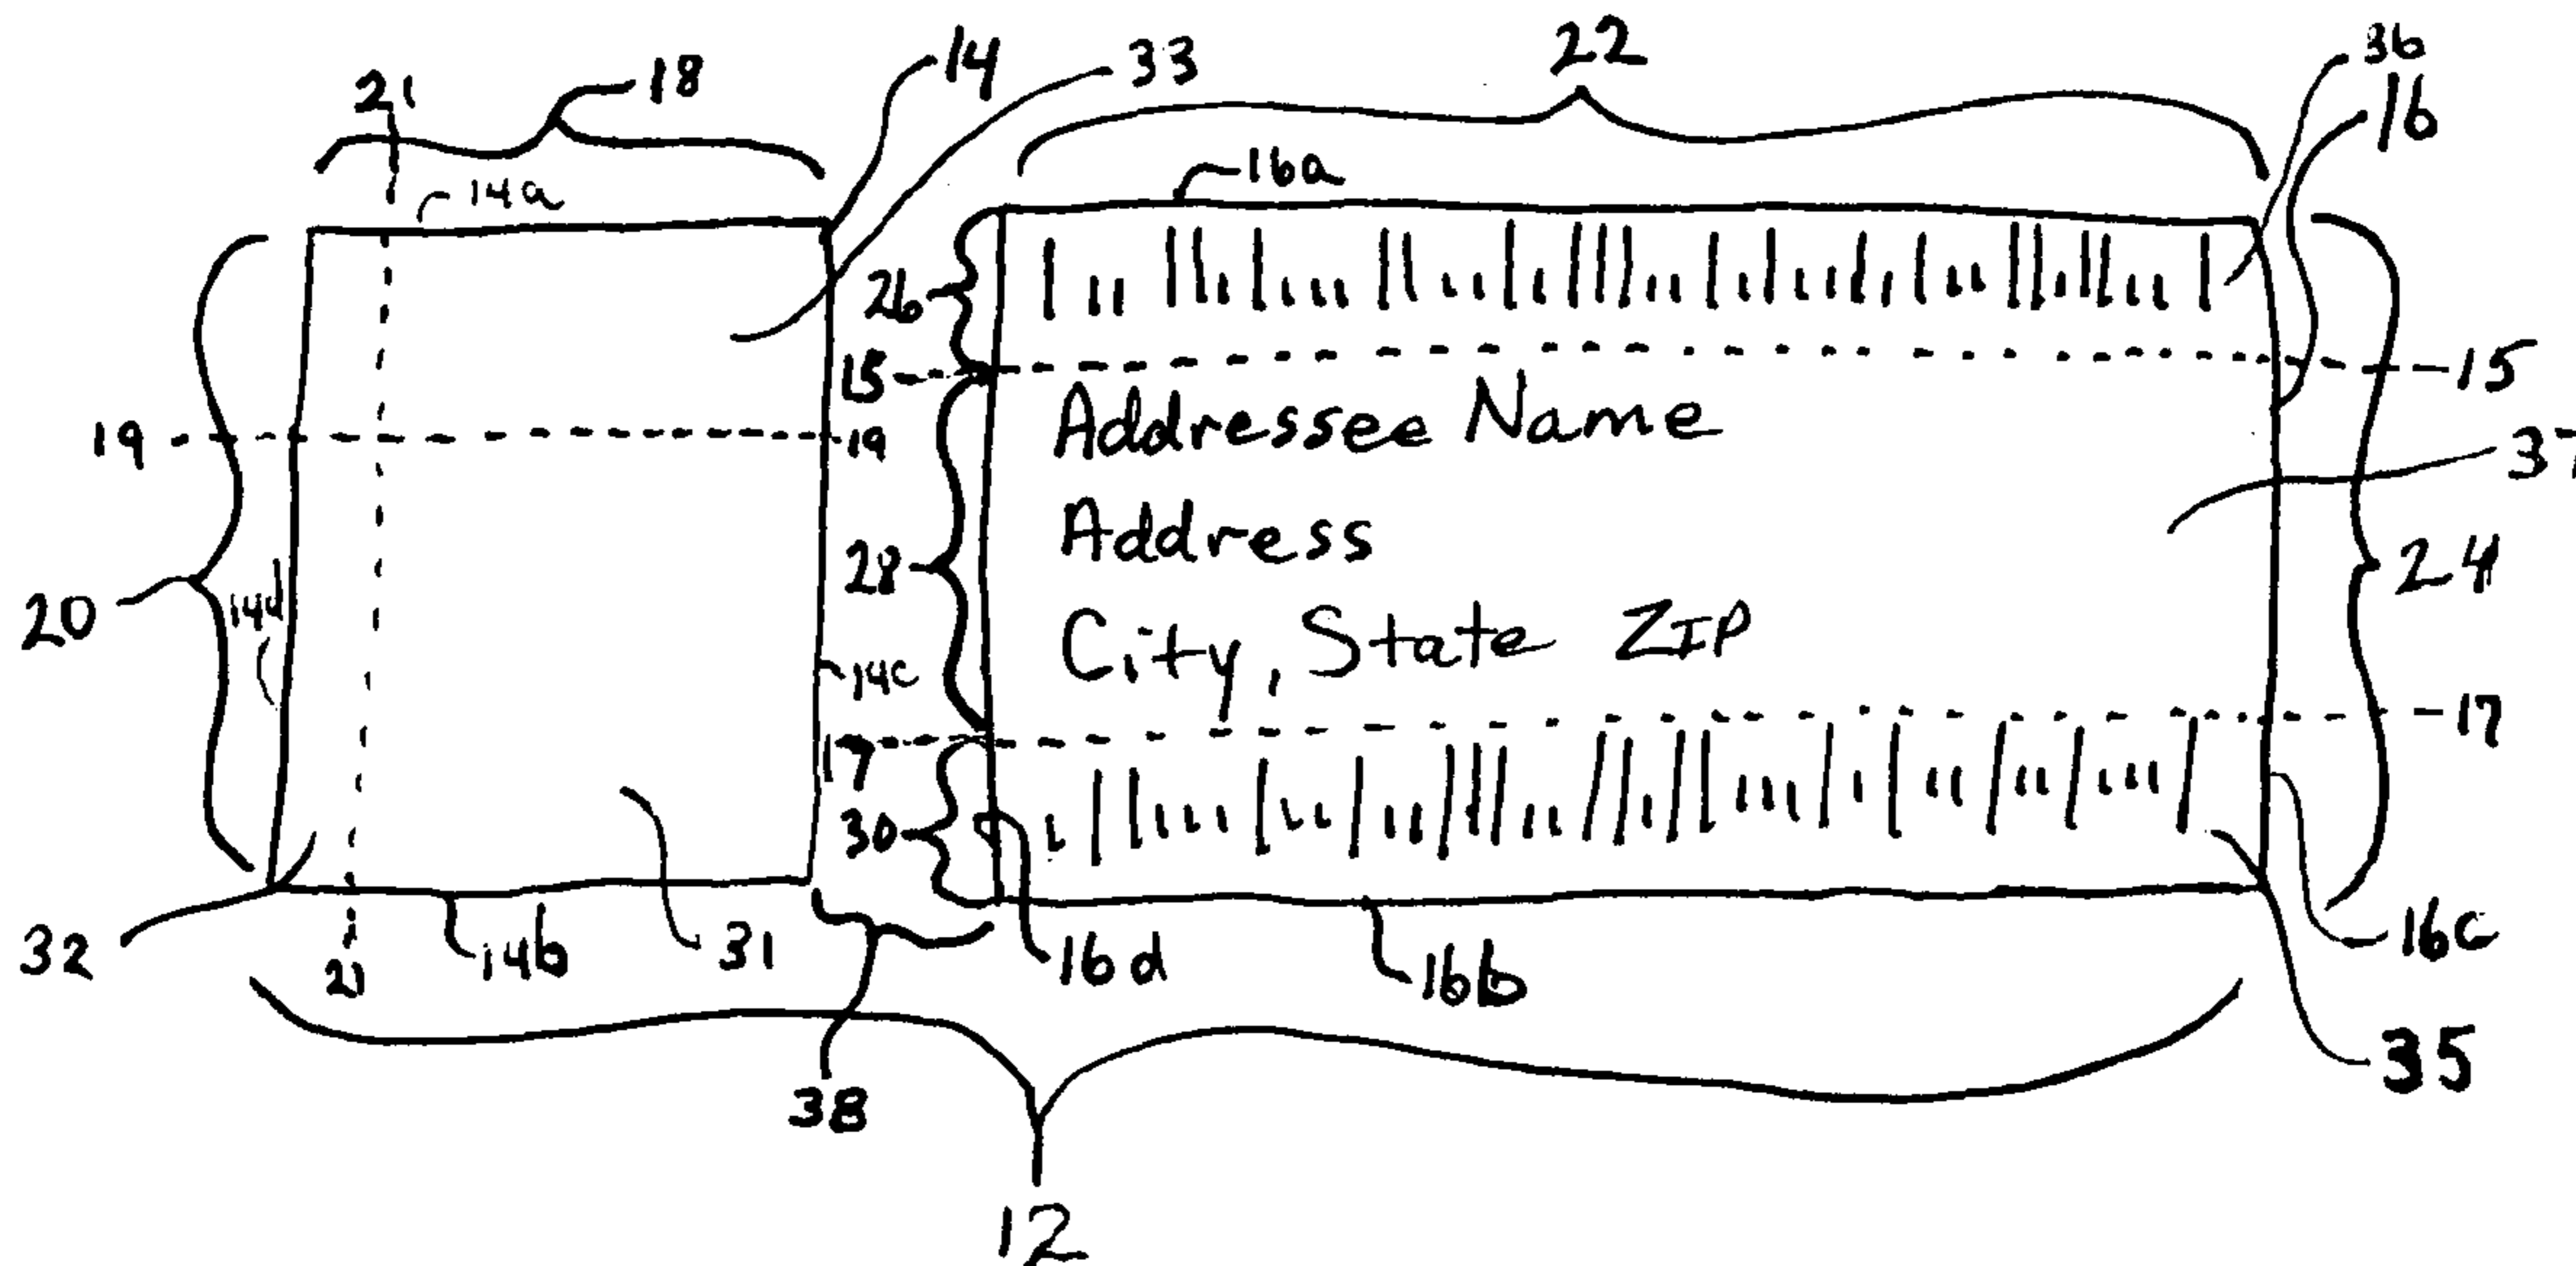 22
36
14
33
18
21
16
16a
14a
26
15
15
Addressee Name
19
19
37
Address
28
24
20
14d
City, State ZIP
14c
17
17
30
32
21
14b
31
16d
16b
16c
35
38
12